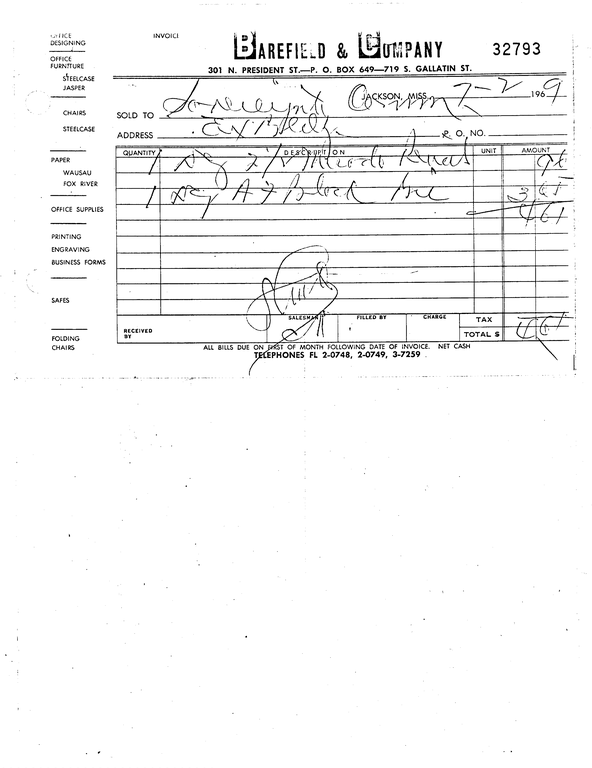 OFFICE
DESIGNING
OFFICE
FURNITURE
STEELCASE
JASPER
CHAIRS
STEELCASE
PAPER
WAUSAU
FOX RIVER
OFFICE SUPPLIES
PRINTING
ENGRAVING
BUSINESS FORMS
SAFES
FOLDING
CHAIRS
INVOICE
BAREFIELD & COMPANY 32793
301 N. PRESIDENT ST.—P. O. BOX 649—719 S. GALLATIN ST.
JACKSON, MISS. 7-2 1969
SOLD TO Sovereignty Comm
ADDRESS R. O. NO.
QUANTITY DESCRIPTION UNIT AMOUNT
1
1 3 65
4 61
SALESMAN FILLED BY CHARGE TAX
RECEIVED
BY
TOTAL $ 4 61
ALL BILLS DUE ON FIRST OF MONTH FOLLOWING DATE OF INVOICE. NET CASH
TELEPHONES FL 2-0748, 2-0749, 3-7259